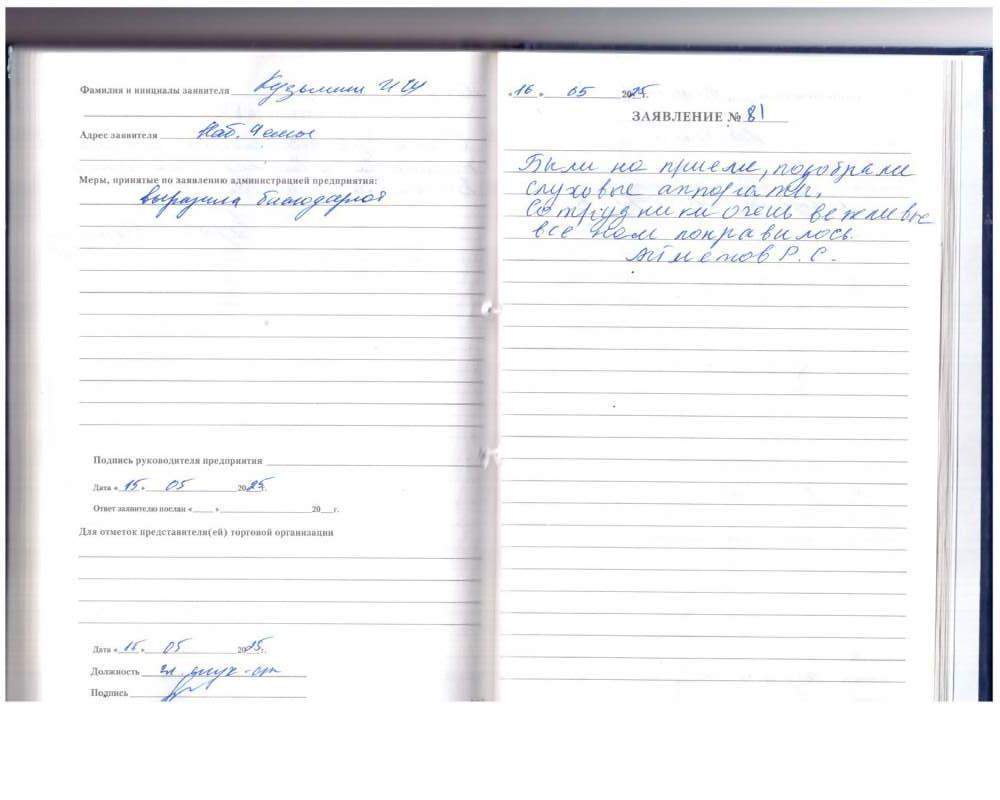 Фамилия и инициалы заявителя Кузьмин
Адрес заявителя Наб. Челны
Меры, принятые по заявлению администрацией предприятия:
выразила
Подпись руководителя предприятия
Дата «15» 05 2025г.
Ответ заявителю послан « » 20 г.
Для отметок представителя(ей) торговой организации
Дата «15» 05 2025г.
Должность
Подпись
«16» 05 2025г.
ЗАЯВЛЕНИЕ № 81
Были на приеме, подобрали
слуховые аппараты.
Сотрудники очень вежливые
все нам понравилось.
Ахметов Р. С.